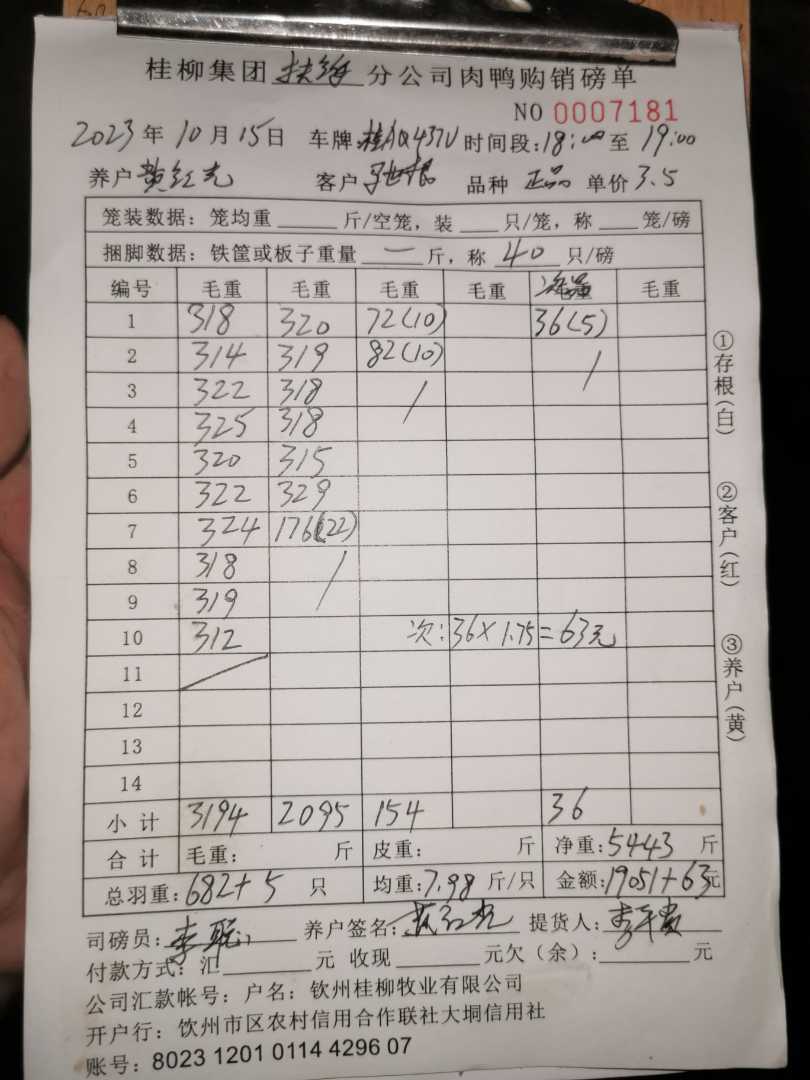 桂柳集团 扶绥 分公司肉鸭购销磅单
NO 0007181
2023年10月15日 车牌:桂AQ437U 时间段:18:00至19:00
养户 黄红光 客户 品种 正品 单价 3.5
笼装数据：笼均重____斤/空笼，装___只/笼，称___笼/磅
捆脚数据：铁筐或板子重量 一 斤，称 40 只/磅
编号 毛重 毛重 毛重 毛重 毛重
1 318 320 72(10) 36(5)
2 314 319 82(10) /
3 322 318 /
4 325 318
5 320 315
6 322 329
7 324 176(22)
8 318 /
9 319
10 312 次:36×1.75=63元
11
12
13
14
小计 3194 2095 154 36
合计 毛重： 斤 皮重： 斤 净重:5443 斤
总羽重:682+5 只 均重:7.98 斤/只 金额:19051+63元
司磅员: 养户签名: 提货人:
付款方式：汇______元 收现______元欠（余）:______元
公司汇款帐号：户名：钦州桂柳牧业有限公司
开户行：饮州市区农村信用合作联社大垌信用社
账号：8023 1201 0114 4296 07
①存根(白)
②客户(红)
③养户(黄)